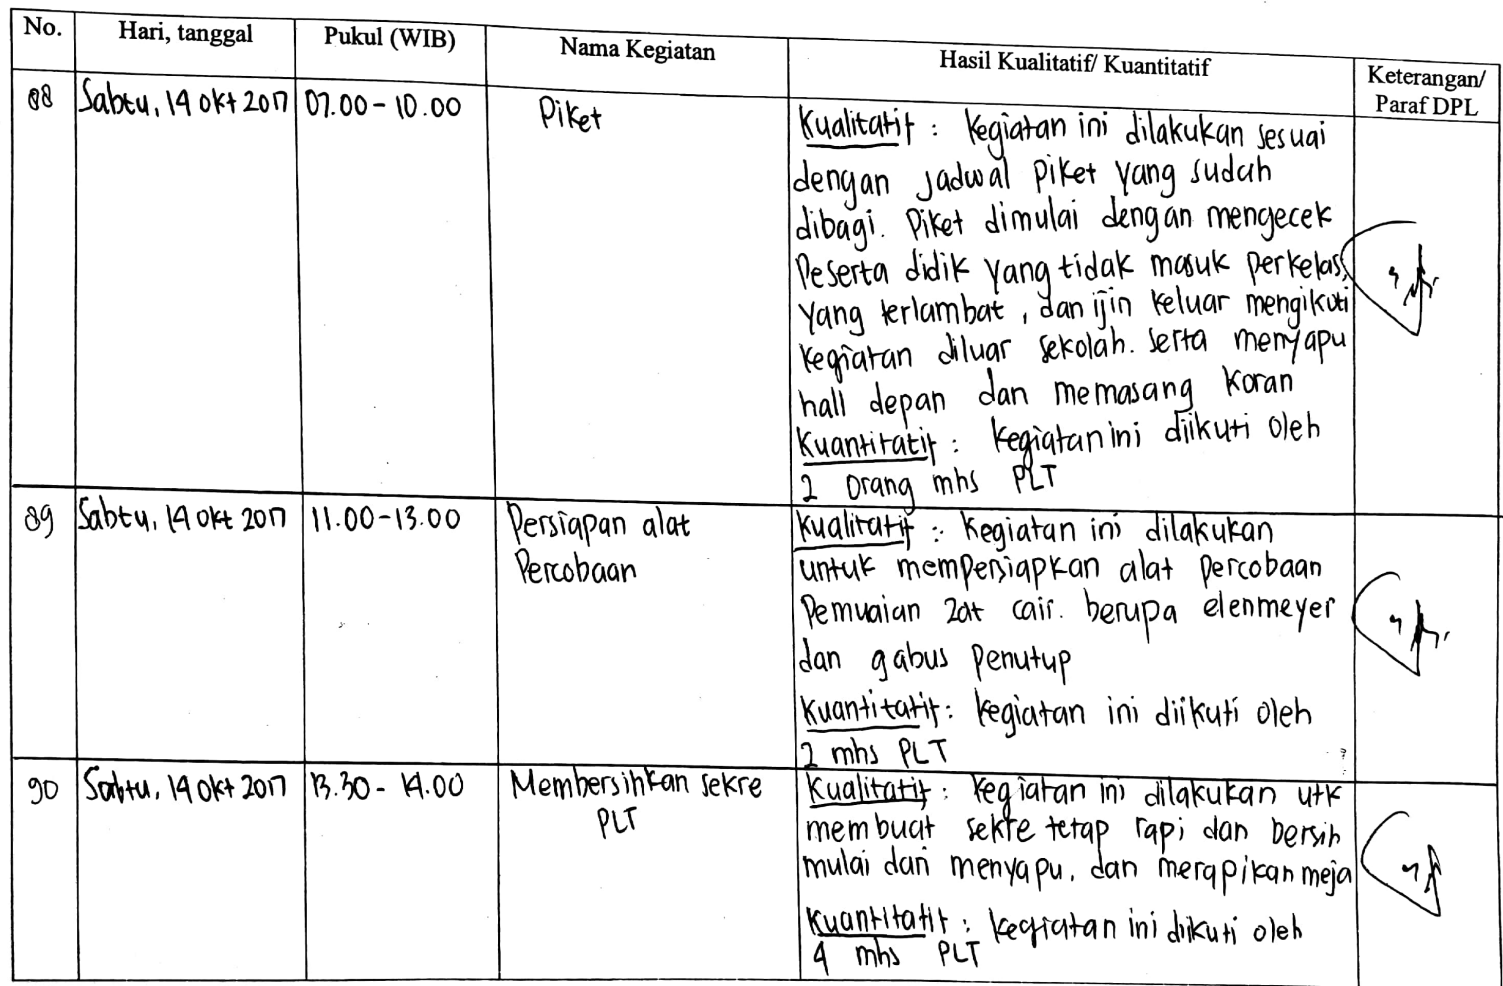 No. Hari, tanggal Pukul (WIB) Nama Kegiatan Hasil Kualitatif/ Kuantitatif Keterangan/
Paraf DPL
88 Sabtu, 14 Okt 2017 07.00 - 10.00 Piket
Kualitatif : kegiatan ini dilakukan sesuai
dengan jadwal piket yang sudah
dibagi. Piket dimulai dengan mengecek
Peserta didik yang tidak masuk perkelas,
yang terlambat, dan ijin keluar mengikuti
kegiatan diluar sekolah. serta menyapu
hall depan dan memasang koran
Kuantitatif : kegiatan ini diikuti oleh
2 orang mhs PLT
89 Sabtu, 14 Okt 2017 11.00-13.00 Persiapan alat
Percobaan
Kualitatif : kegiatan ini dilakukan
untuk mempersiapkan alat percobaan
Pemuaian zat cair. berupa elenmeyer
dan gabus penutup
Kuantitatif : kegiatan ini diikuti oleh
2 mhs PLT
90 Sabtu, 14 Okt 2017 13.30 - 14.00 Membersihkan sekre
PLT
Kualitatif : kegiatan ini dilakukan utk
membuat sekre tetap rapi dan bersih
mulai dari menyapu, dan merapikan meja
Kuantitatif : kegiatan ini diikuti oleh
4 mhs PLT